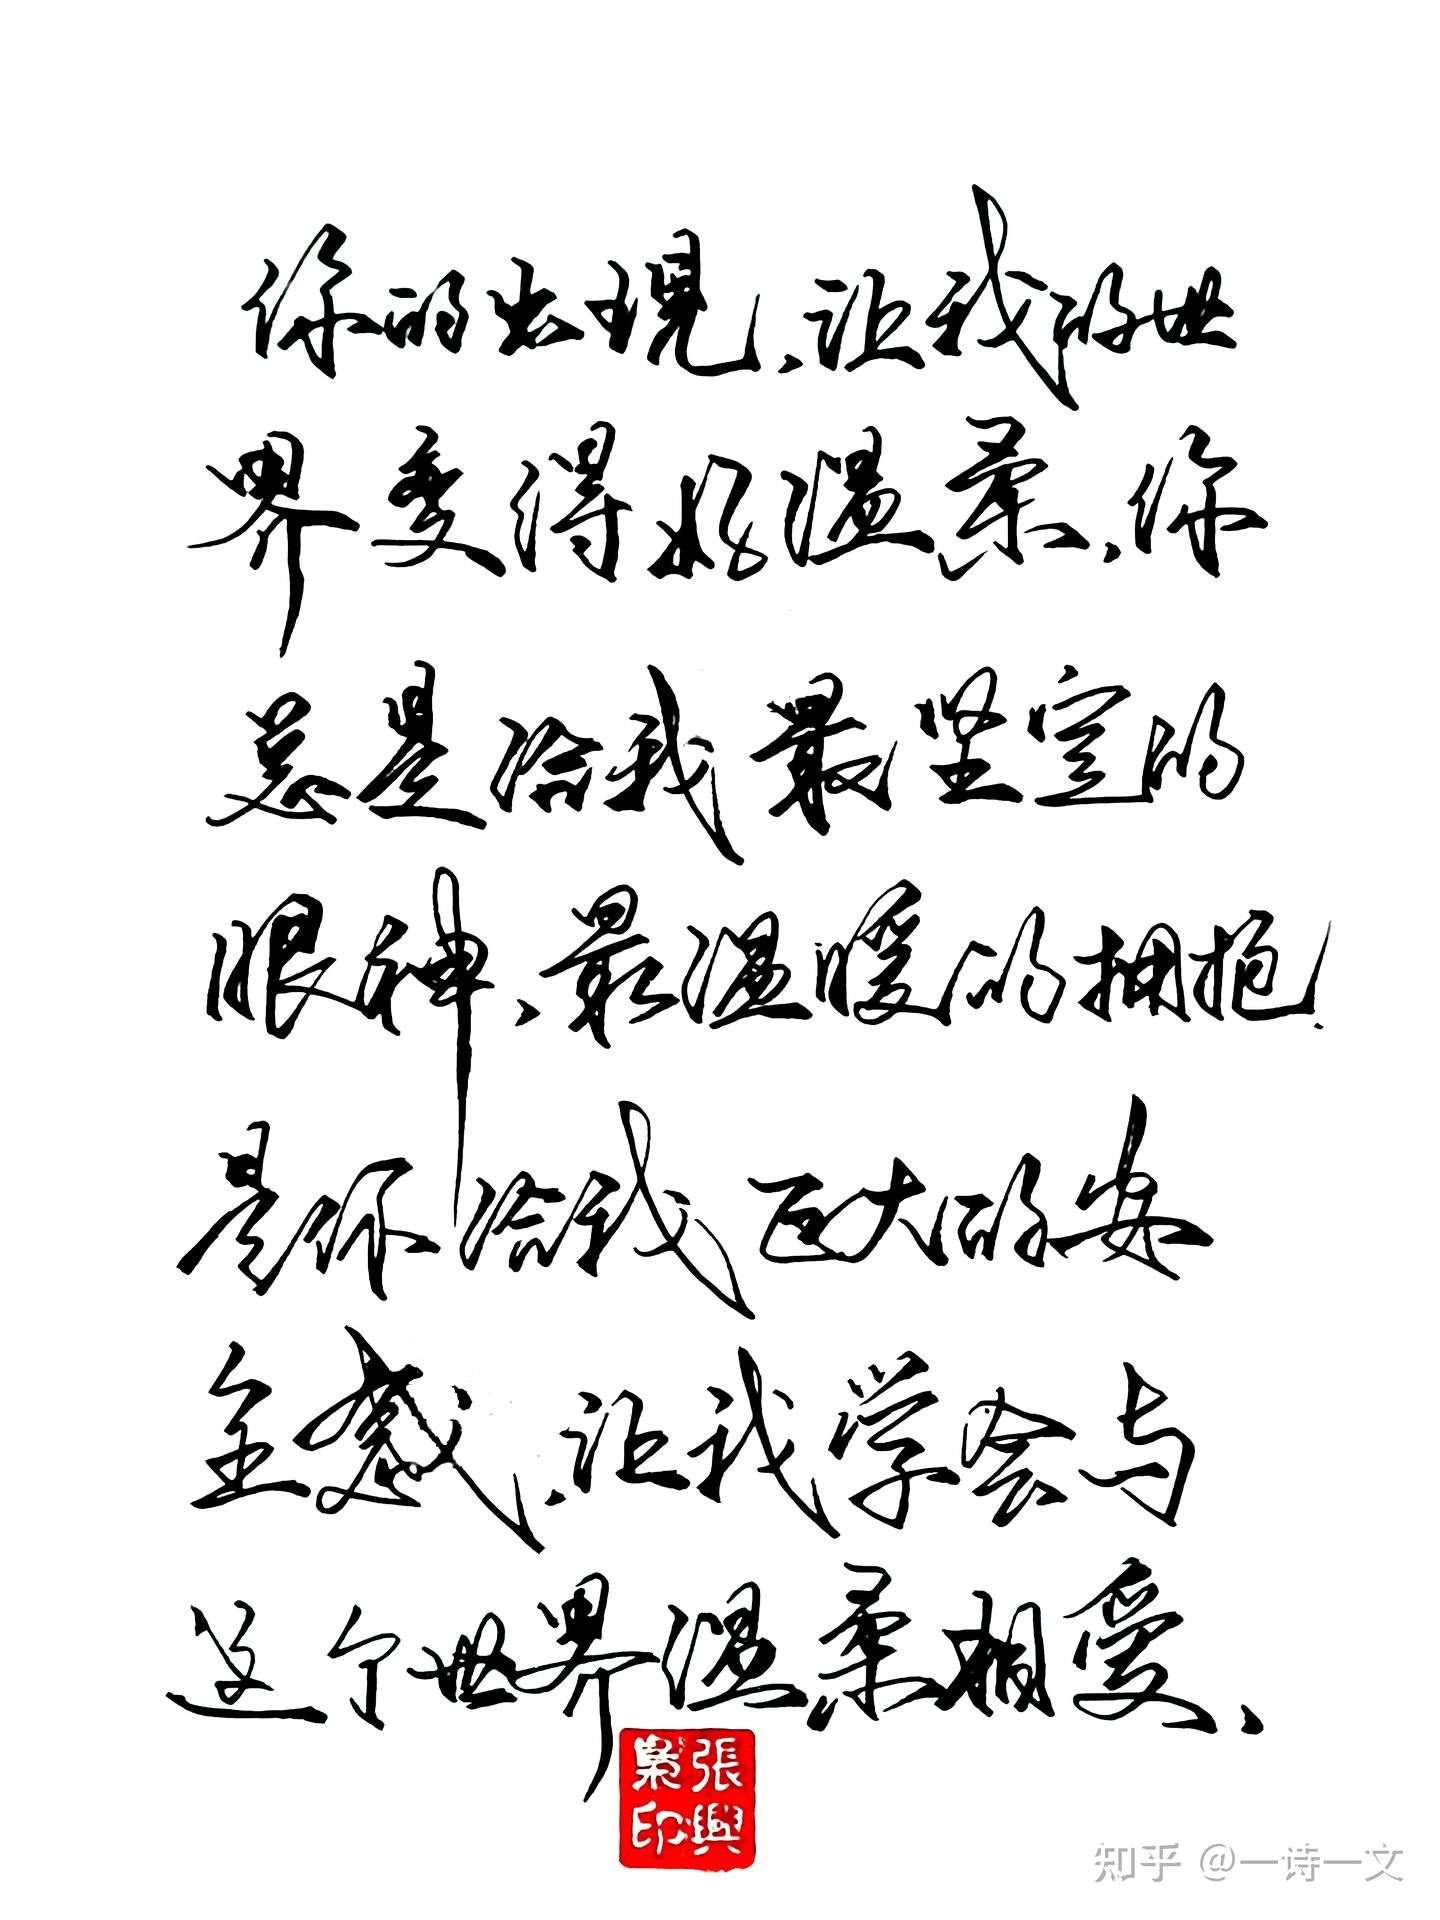 你的出现、让我的世
界变得好温柔、你
总是给我最坚定的
眼神、最温暖的拥抱！
是你给我巨大的安
全感、让我学会与
这个世界温柔相爱、
張興
印
知乎 @一诗一文